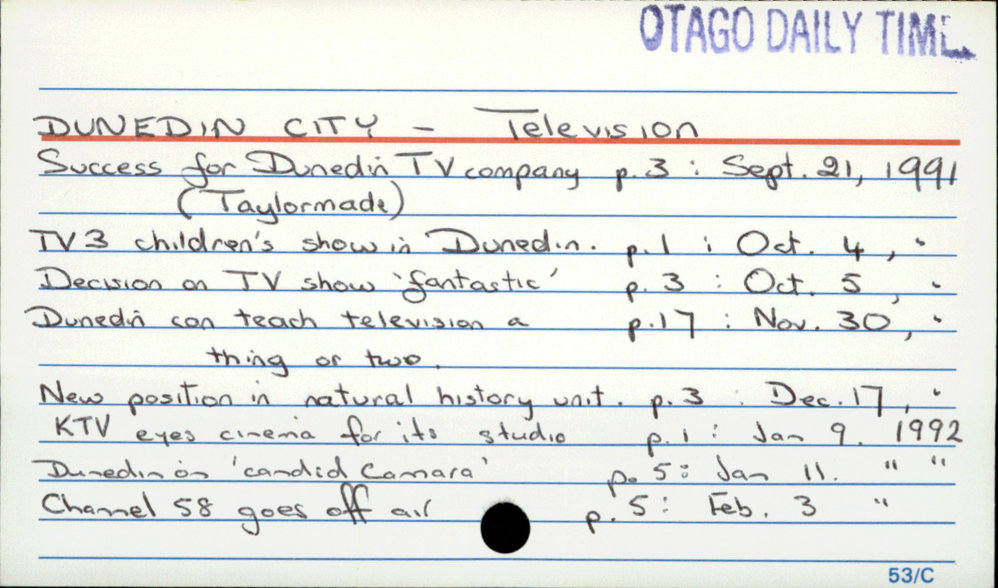 OTAGO DAILY TIME
DUNEDIN CITY - Television
Success for Dunedin TV company p.3 : Sept. 21, 1991
(Taylormade)
TV3 children's show in Dunedin. p.1 : Oct. 4, "
Decision on TV show 'fantastic' p. 3 : Oct. 5, "
Dunedin can teach television a p.17 : Nov. 30, "
thing or two.
New position in natural history unit. p.3 : Dec.17, "
KTV eyes cinema for its studio p.1 : Jan 9. 1992
Dunedin on 'candid Camara' p. 5: Jan 11. " "
Channel 58 goes off air p. 5: Feb. 3 "
53/C